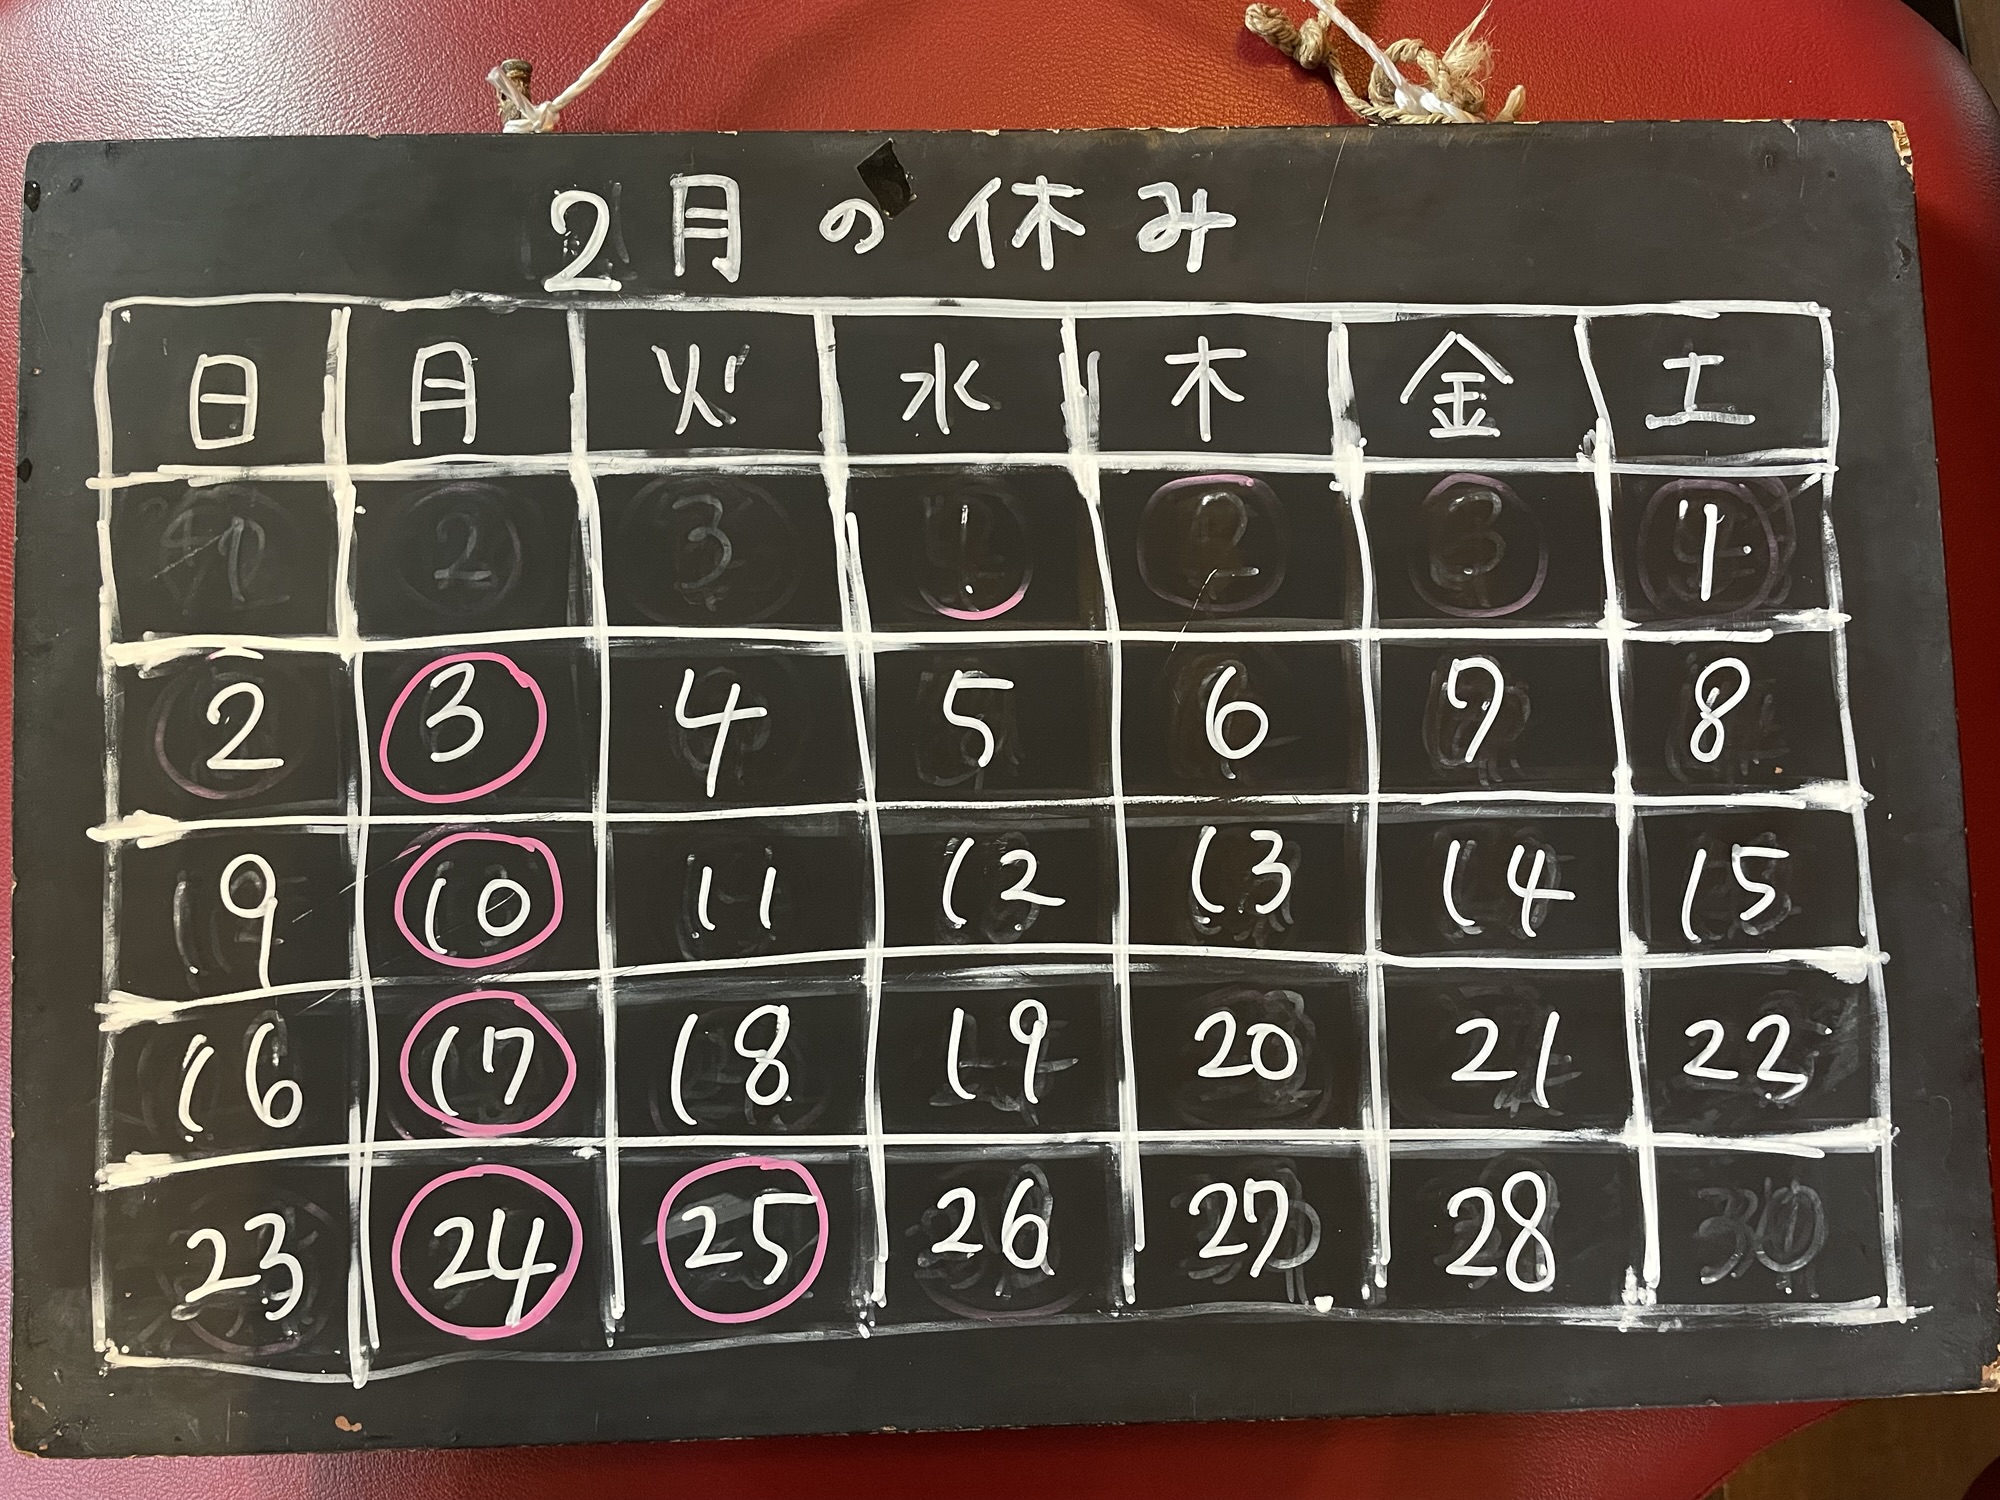 2月の休み
日 月 火 水 木 金 土
1
2 3 4 5 6 7 8
9 10 11 12 13 14 15
16 17 18 19 20 21 22
23 24 25 26 27 28